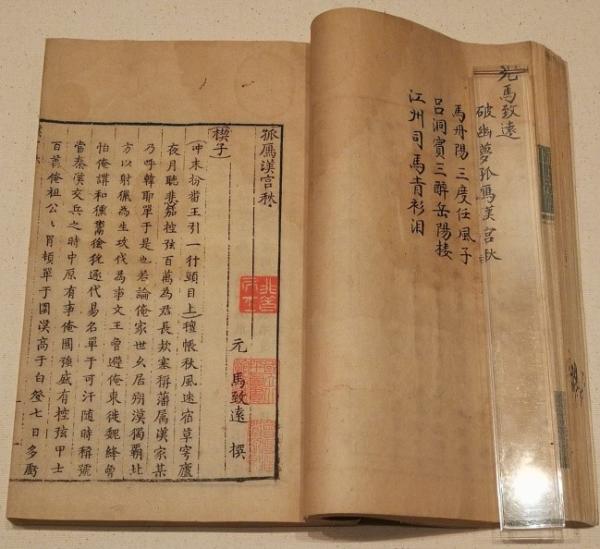 元馬致遠
破幽夢孤鴈漢宮秋
馬丹陽三度任風子
呂洞賓三醉岳陽樓
江州司馬青衫泪
孤鴈漢宮秋
元 馬致遠 撰
楔子
(冲末扮番王引一行頭目上)氊帳秋風迷宿草穹廬
夜月聽悲笳控弦百萬為君長款塞稱藩属漢家某
乃呼韓耶單于是也若論俺家世久居朔漠獨霸北
方以射獵為生攻伐為事文王曾避俺東徙魏絳曾
怕俺講和獯鬻獫狁逐代易名單于可汗随時稱號
當秦漢交兵之時中原有事俺國強盛有控弦甲士
百萬俺祖公公冒頓單于圍漢高于白登七日多虧